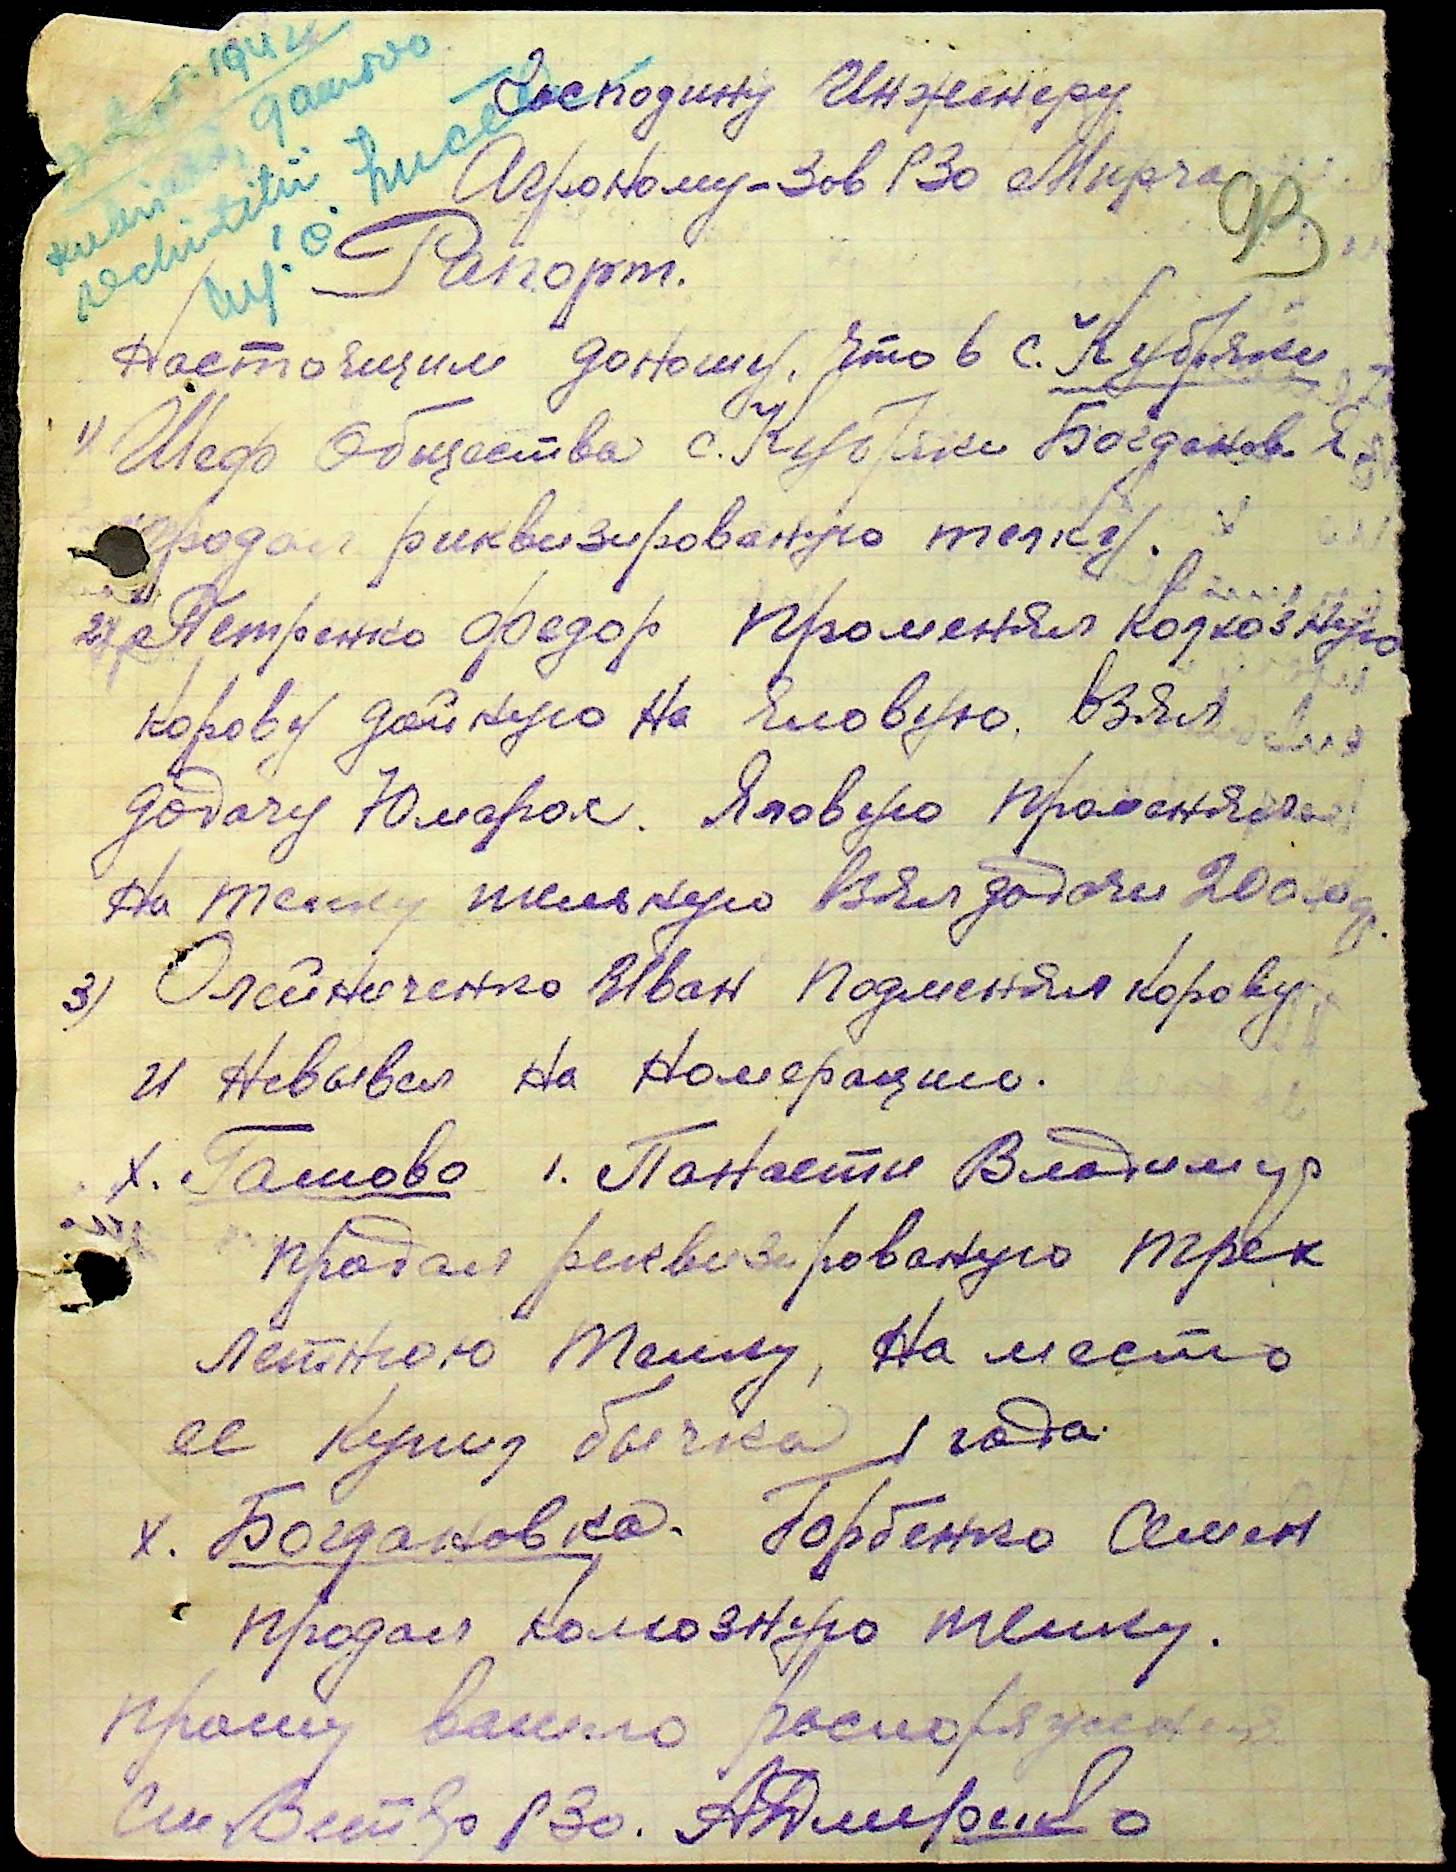 1944
Господину Инженеру
Агроному-Зав РЗО Мирча
93
Рапорт.
Настоящим доношу, что в с. Кубряки
1) Шеф Общества с. Кубряки Богданов Я
продал риквизированую телку.
2) Петренко Федор променял колхозную
корову дойную на яловую. взял
додачу Юмарок. Яловую променял
на телку тельную взял додачи 200 м
3) Олейниченко Иван подменял корову
и невывел на номерацию.
х. Гашово 1. Панасти Владимир
продал реквизированую трех
летнюю телку, на место
ее купил бычка 1 года.
х. Богдановка. Горбенко Семен
продал колхозную телку.
прошу вашего распоряжения
РЗО.